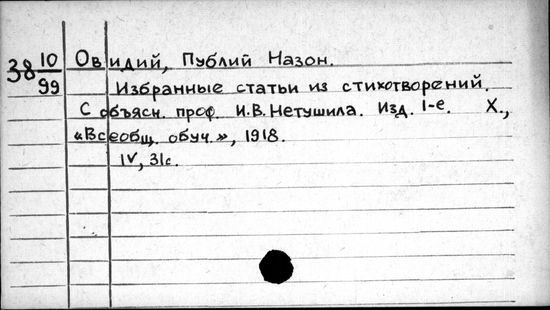 38 10/99
Овидий, Публий Назон.
Избранные статьи из стихотворений.
С объясн. проф. И.В. Нетушила. Изд. 1-е. Х.,
«Всеобщ. обуч.», 1918.
IV, 31с.